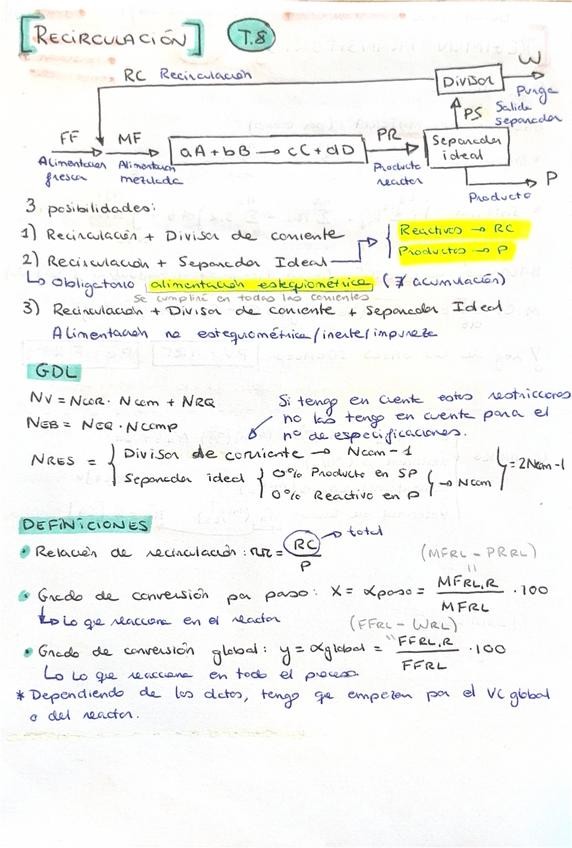 [RECIRCULACIÓN] T.8
RC Recirculación
Divisor
W
Purga
PS Salida separador
FF
Alimentación fresca
MF
Alimentación mezclada
aA + bB → cC + dD
PR
Producto reactor
Separador ideal
P
Producto
3 posibilidades:
1) Recirculación + Divisor de corriente
2) Recirculación + Separador Ideal → { Reactivos → RC
Productos → P
↳ Obligatorio alimentación estequiométrica (∄ acumulación)
Se cumplirá en todas las corrientes
3) Recirculación + Divisor de corriente + Separador Ideal
Alimentación no estequiométrica/inerte/impureza
GDL
NV = NCOR · Ncom + NRQ
NEB = NEQ · NComp
Si tengo en cuenta estas restricciones no las tengo en cuenta para el nº de especificaciones.
NRES = { Divisor de corriente → Ncom - 1
Separador ideal { 0% Producto en SP
0% Reactivo en P } → Ncom } = 2Ncom - 1
DEFINICIONES
• Relación de recirculación: rr = RC / P → total
• Grado de conversión por paso: X = αpaso = MFRL,R / MFRL · 100
(MFRL - PRRL)
"
↳ Lo que reacciona en el reactor
(FFRL - WRL)
"
• Grado de conversión global: y = αglobal = FFRL,R / FFRL · 100
↳ Lo que reacciona en todo el proceso
* Dependiendo de los datos, tengo que empezar por el VC global
o del reactor.